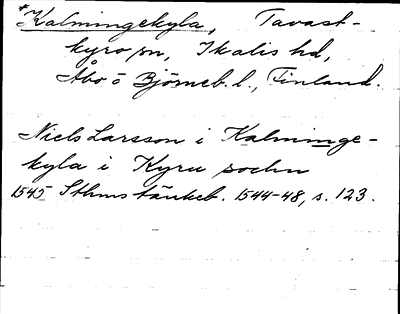 *Kalmingekyla, Tavast-
kyro sn, Ikalis hd,
Åbo o Björneb. l., Finland.
Niels Larsson i Kalminge-
kyla i Kyru sochn
1545 Sthms tänkeb. 1544-48, s. 123.